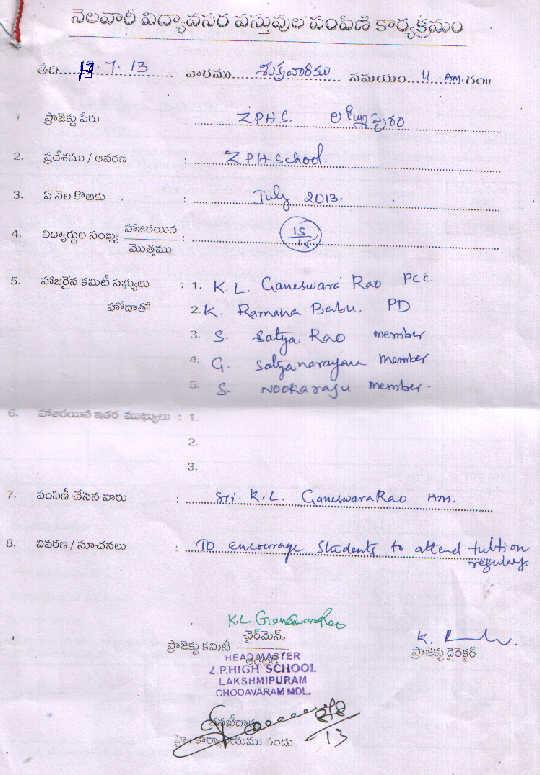 నెలవారీ విద్యావసర వస్తువుల పంపిణి కార్యక్రమం
తేది 7. 13 వారము శుక్రవారము సమయం 4 AM.గం॥
1 ప్రాజెక్టు పేరు : ZPHS.
2. ప్రదేశము / ఆవరణ : ZPHSchool
3. ఏ నెల కొఱకు : July 2013.
4. విద్యార్థుల సంఖ్య హాజరయిన : 15
మొత్తము
5. హాజరైన కమిటీ సభ్యులు : 1. K. L. Ganeswara Rao PCC.
హోదాతో 2. K. Ramana Babu. PD
3. S. Satya Rao member
4. G. Satyanarayana member
5. S. Nookaraju member.
6. హాజరయిన ఇతర ముఖ్యులు : 1.
2.
3.
7. పంపిణీ చేసిన వారు : Sri K.L. GaneswaraRao Hm.
8. వివరణ / సూచనలు : To encourage students to attend tuition
regularly
K.L. GaneswaraRao
ఛైర్‌మెన్, K.
ప్రాజెక్టు కమిటీ ప్రాజెక్టు డైరెక్టర్
HEAD MASTER
Z.P.HIGH SCHOOL
LAKSHMIPURAM
CHODAVARAM MDL.
13